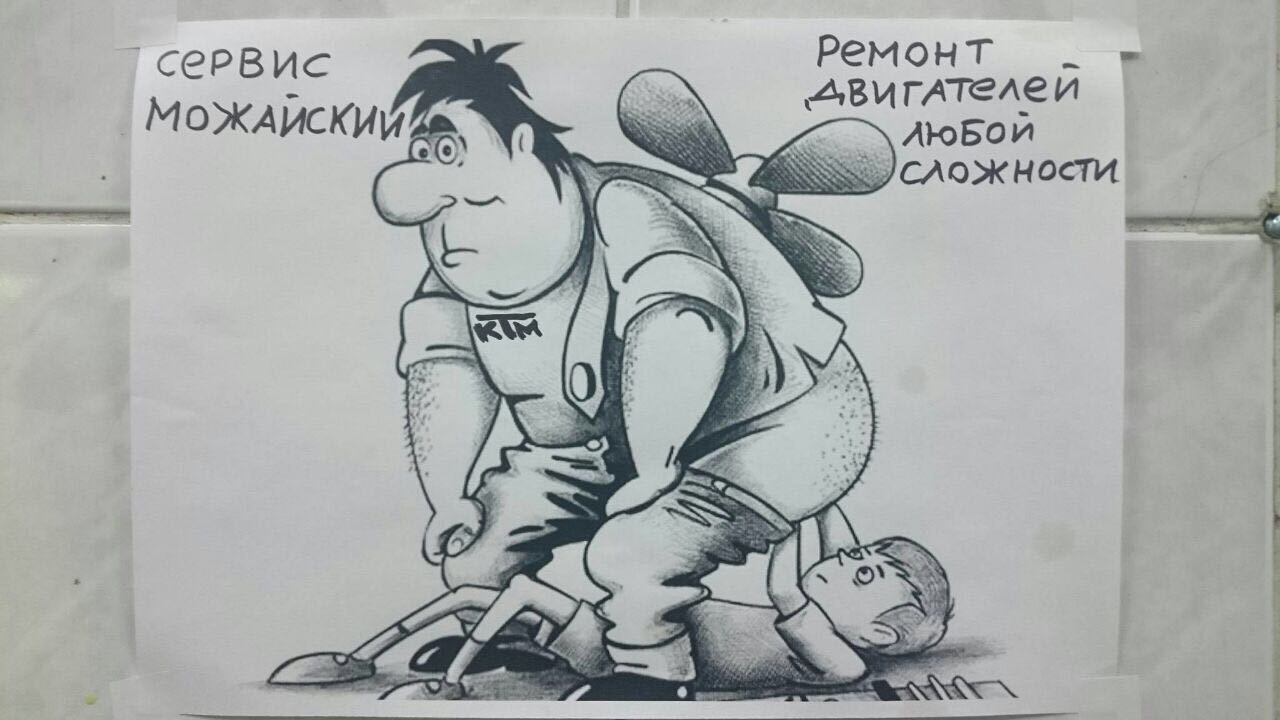 СЕРВИС
МОЖАЙСКИЙ
РЕМОНТ
ДВИГАТЕЛЕЙ
ЛЮБОЙ
СЛОЖНОСТИ
КТМ